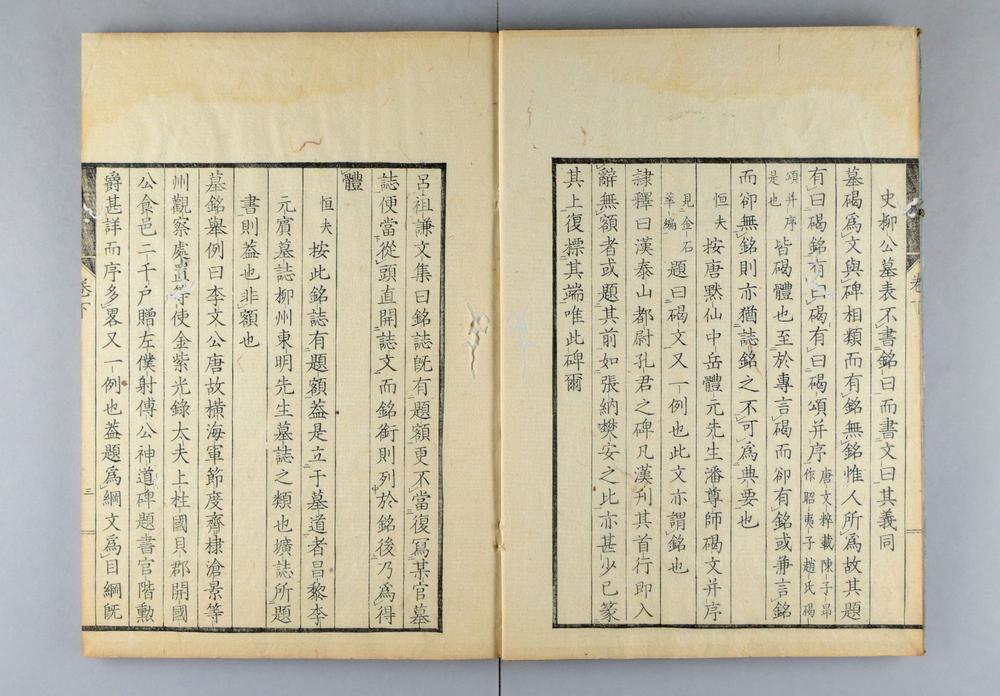 史柳公墓表不書銘曰而書文曰其義同
墓碣爲文與碑相類而有銘無銘惟人所爲故其題
有曰碣銘有曰碣有曰碣頌并序唐文粹載陳子昂
作昭夷子趙氏碣
頌并序
是也皆碣體也至於專言碣而卻有銘或兼言銘
而卻無銘則亦猶誌銘之不可爲典要也
恒夫按唐默仙中岳體元先生潘尊師碣文并序
見金石
萃編題曰碣文又一例也此文亦謂銘也
隷釋曰漢泰山都尉孔君之碑凡漢刊其首行即入
辭無額者或題其前如張納樊安之比亦甚少已篆
其上復標其端唯此碑爾
呂祖謙文集曰銘誌旣有題額更不當復寫某官墓
誌便當從頭直開誌文而銘銜則列於銘後乃爲得
體
恒夫按此銘誌有題額葢是立于墓道者昌黎李
元賓墓誌柳州東明先生墓誌之類也壙誌所題
書則葢也非額也
墓銘舉例曰李文公唐故橫海軍節度齊棣滄景等
州觀察處置等使金紫光錄太夫上柱國貝郡開國
公食邑二千戸贈左僕射傅公神道碑題書官階勲
爵甚詳而序多畧又一例也葢題爲綱文爲目綱旣
卷下
三